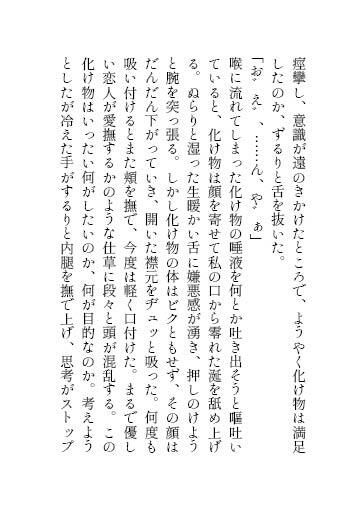 痙攣し、意識が遠のきかけたところで、ようやく化け物は満足
したのか、ずるりと舌を抜いた。
「お゛え゛、……ん、や゛ぁ」
喉に流れてしまった化け物の唾液を何とか吐き出そうと嘔吐い
ていると、化け物は顔を寄せて私の口から零れた涎を舐め上げ
る。ぬらりと湿った生暖かい舌に嫌悪感が湧き、押しのけよう
と腕を突っ張る。しかし化け物の体はビクともせず、その顔は
だんだん下がっていき、開いた襟元をヂュッと吸った。何度も
吸い付けるとまた頬を撫で、今度は軽く口付けた。まるで優し
い恋人が愛撫するかのような仕草に段々と頭が混乱する。この
化け物はいったい何がしたいのか、何が目的なのか。考えよう
としたが冷えた手がするりと内腿を撫で上げ、思考がストップ